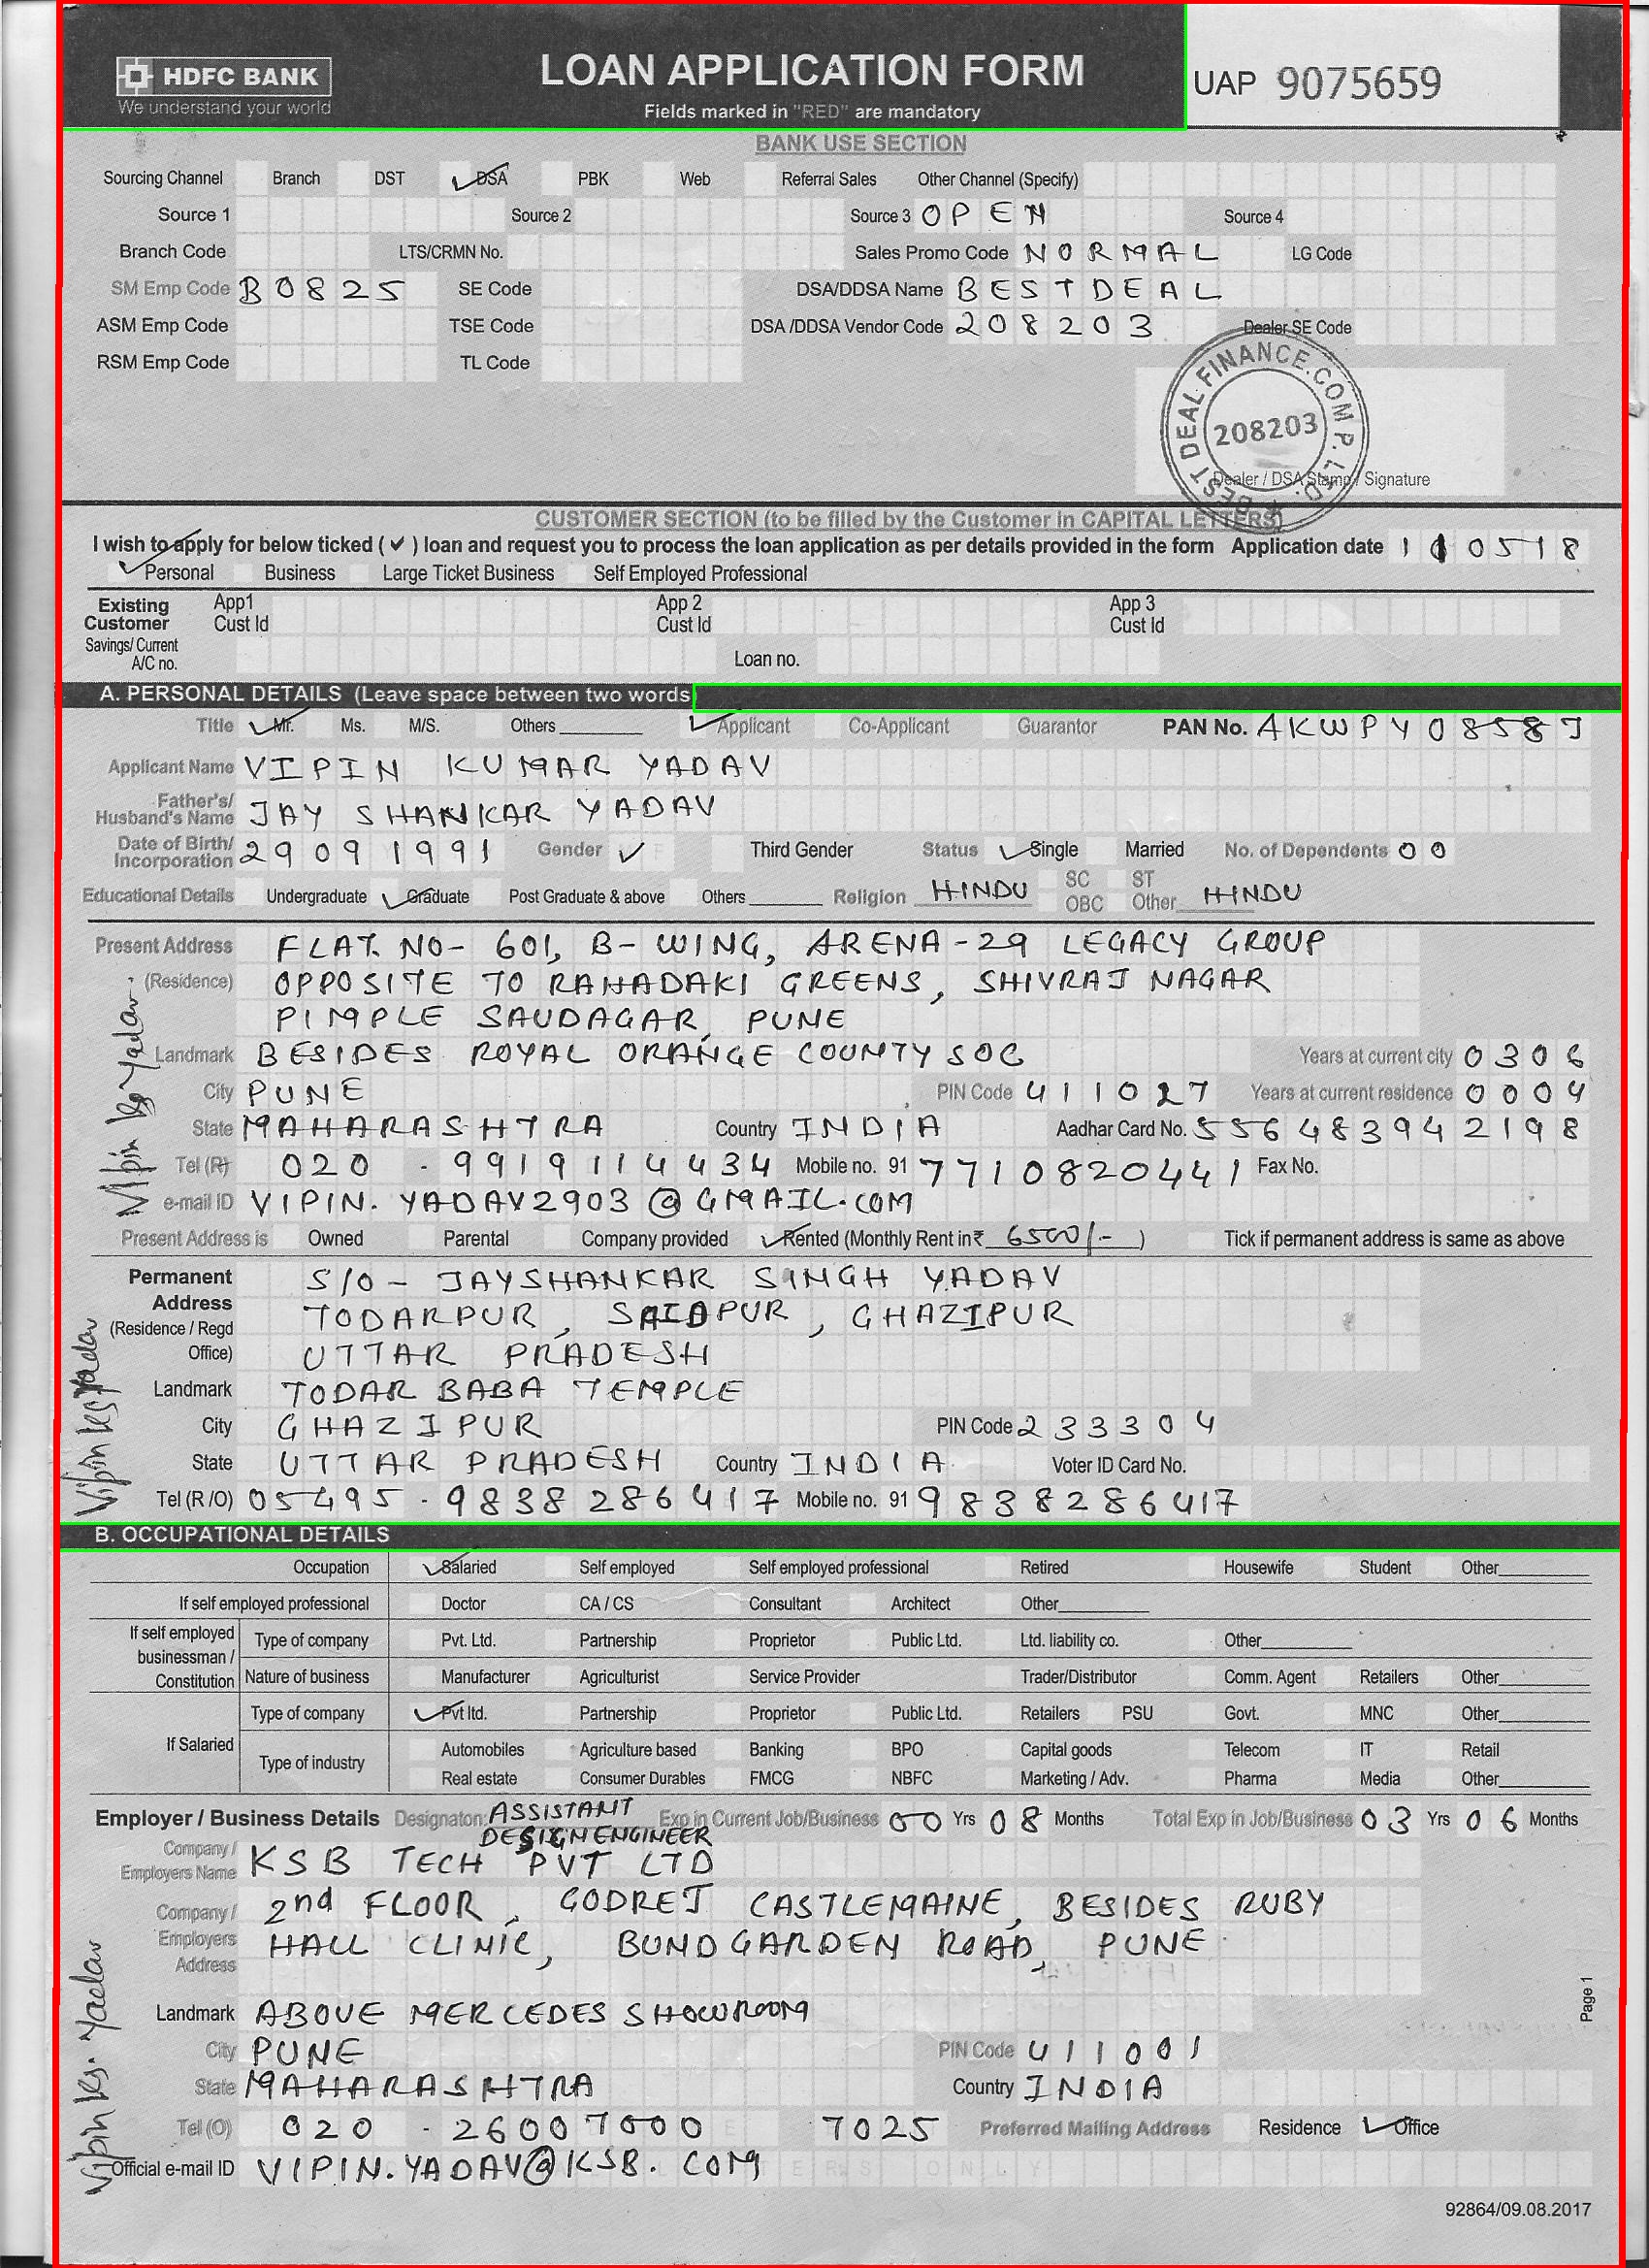 HDFC BANK
We understand your world
LOAN APPLICATION FORM
Fields marked in "RED" are mandatory
UAP 9075659
BANK USE SECTION
Sourcing Channel Branch DST DSA PBK Web Referral Sales Other Channel (Specify)
Source 1 Source 2 Source 3 OPEN Source 4
Branch Code LTS/CRMN No. Sales Promo Code NORMAL LG Code
SM Emp Code B0825 SE Code DSA/DDSA Name BESTDEAL
ASM Emp Code TSE Code DSA /DDSA Vendor Code 208203 Dealer SE Code
RSM Emp Code TL Code
BEST DEAL FINANCE.COM P. LTD.
208203
Dealer / DSA Stamp / Signature
CUSTOMER SECTION (to be filled by the Customer in CAPITAL LETTERS)
I wish to apply for below ticked (✓) loan and request you to process the loan application as per details provided in the form Application date 110518
Personal Business Large Ticket Business Self Employed Professional
Existing Customer App1 Cust Id App 2 Cust Id App 3 Cust Id
Savings/ Current A/C no. Loan no.
A. PERSONAL DETAILS (Leave space between two words
Title Mr. Ms. M/S. Others Applicant Co-Applicant Guarantor PAN No. AKWPY0858J
Applicant Name VIPIN KUMAR YADAV
Father's/ Husband's Name JAY SHANKAR YADAV
Date of Birth/ Incorporation 29091991 Gender Third Gender Status Single Married No. of Dependents 00
Educational Details Undergraduate Graduate Post Graduate & above Others Religion HINDU SC ST OBC Other HINDU
Present Address FLAT. NO- 601, B- WING, ARENA-29 LEGACY GROUP
(Residence) OPPOSITE TO RAHADAKI GREENS, SHIVRAJ NAGAR
PIMPLE SAUDAGAR, PUNE
Landmark BESIDES ROYAL ORANGE COUNTY SOC Years at current city 0306
City PUNE PIN Code 411027 Years at current residence 0004
State MAHARASHTRA Country INDIA Aadhar Card No. 556483942198
Tel (R) 020 - 9919114434 Mobile no. 91 7710820441 Fax No.
e-mail ID VIPIN.YADAV2903@GMAIL.COM
Present Address is Owned Parental Company provided Rented (Monthly Rent in ₹ 6500/- ) Tick if permanent address is same as above
Vipin Kr Yadav
Permanent Address S/O - JAYSHANKAR SINGH YADAV
(Residence / Regd Office) TODARPUR, SAIDPUR, GHAZIPUR
UTTAR PRADESH
Landmark TODAR BABA TEMPLE
City GHAZIPUR PIN Code 233304
State UTTAR PRADESH Country INDIA Voter ID Card No.
Tel (R /O) 05495 - 9838286417 Mobile no. 91 9838286417
Vipin Kr Yadav
B. OCCUPATIONAL DETAILS
Occupation Salaried Self employed Self employed professional Retired Housewife Student Other
If self employed professional Doctor CA / CS Consultant Architect Other
If self employed businessman / Constitution Type of company Pvt. Ltd. Partnership Proprietor Public Ltd. Ltd. liability co. Other
Nature of business Manufacturer Agriculturist Service Provider Trader/Distributor Comm. Agent Retailers Other
If Salaried Type of company Pvt ltd. Partnership Proprietor Public Ltd. Retailers PSU Govt. MNC Other
Type of industry Automobiles Agriculture based Banking BPO Capital goods Telecom IT Retail
Real estate Consumer Durables FMCG NBFC Marketing / Adv. Pharma Media Other
Employer / Business Details Designaton: ASSISTANT DESIGN ENGINEER Exp in Current Job/Business 00 Yrs 08 Months Total Exp in Job/Business 03 Yrs 06 Months
Company / Employers Name KSB TECH PVT LTD
Company / Employers Address 2nd FLOOR, GODREJ CASTLEMAINE, BESIDES RUBY
HALL CLINIC, BUNDGARDEN ROAD, PUNE
Landmark ABOVE MERCEDES SHOWROOM
City PUNE PIN Code 411001
State MAHARASHTRA Country INDIA
Tel (O) 020 - 26007000 7025 Preferred Mailing Address Residence Office
Official e-mail ID VIPIN.YADAV@KSB.COM
Vipin Kr. Yadav
Page 1
92864/09.08.2017